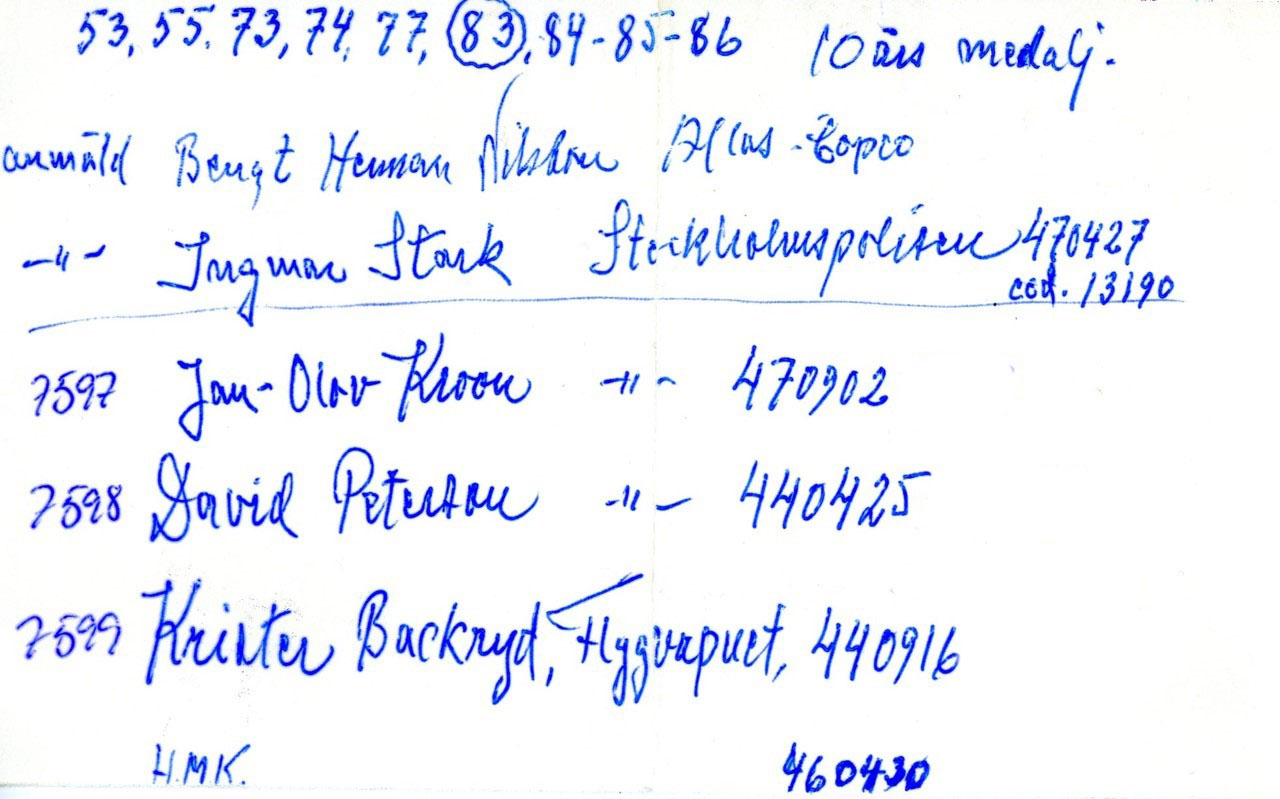 53, 55, 73, 74, 77, 83, 84-85-86 10 års medalj.
anmäld Bengt Herman Nilsson Atlas-Copco
-"- Ingmar Stark Stockholmspolisen 470427
cod. 13190
7597 Jan-Olov Kroon -"- 470902
7598 David Peterson -"- 440425
7599 Krister Backryd, Flygvapnet, 440916
H.M.K. 460430